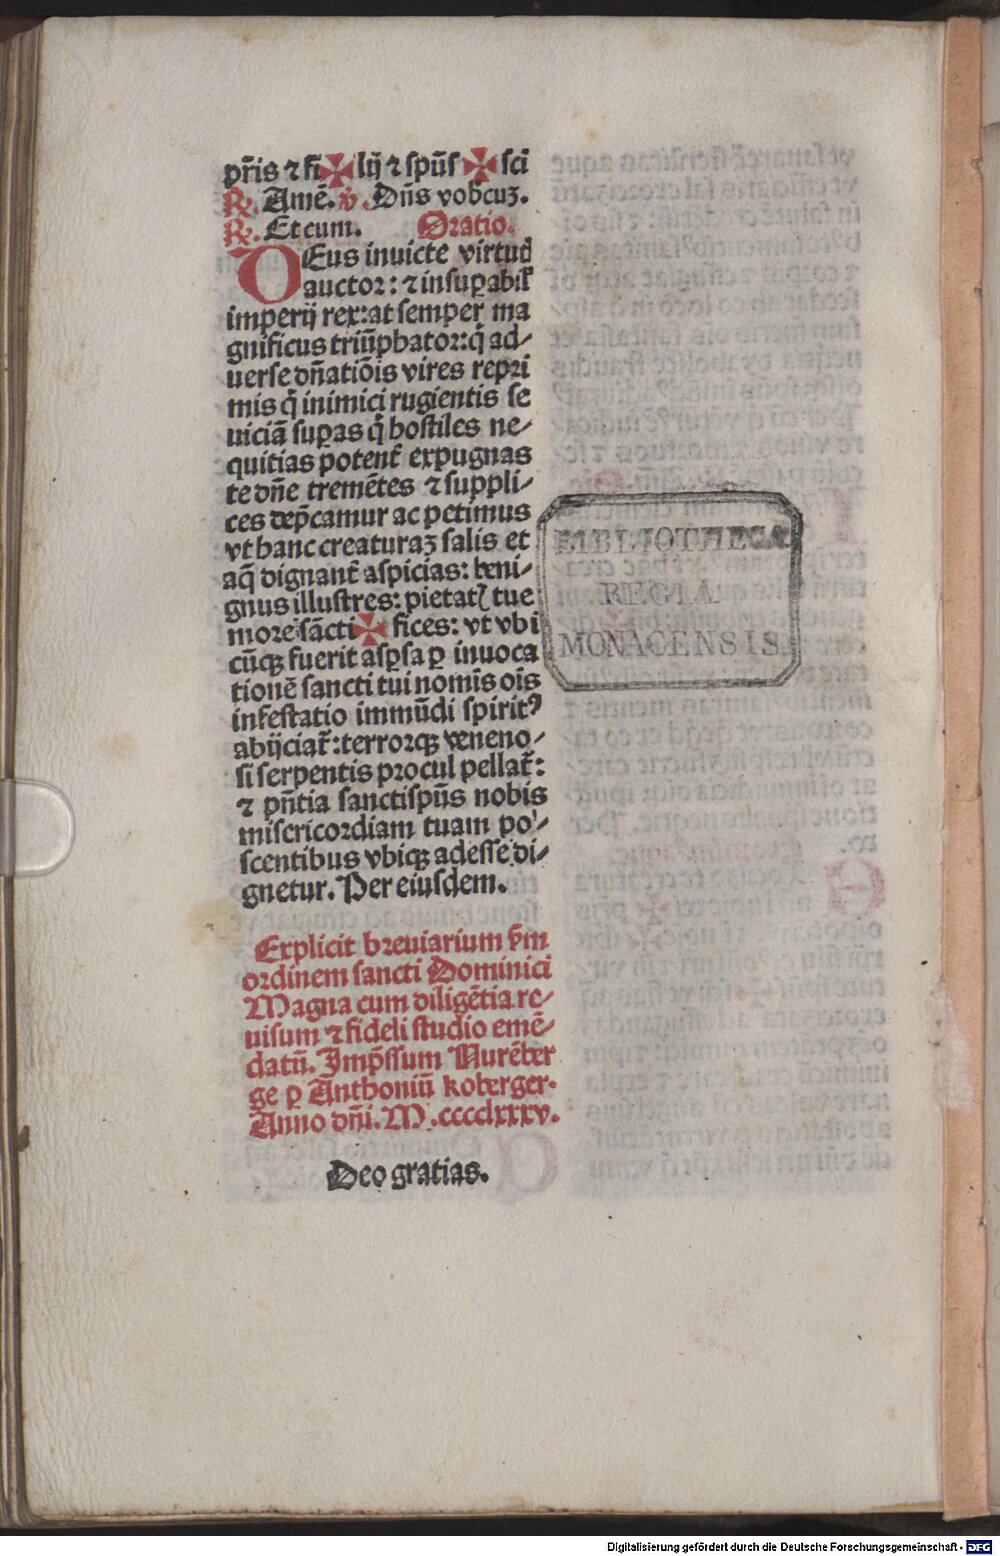 pr̄is ⁊ fi✠lij ⁊ spūs✠sci
℟. Amē. ℣. Dn̄s vobcuꝫ.
℟. Et cum. Oratio.
DEus inuicte virtutū
auctor: ⁊ insuꝑabil̓
imperij rex: at semper ma
gnificus triūphator: q̄ ad⸗
uerse dn̄atiōis vires repri
mis q̄ inimici rugientis se
uiciā suꝑas q̄ hostiles ne⸗
quitias potent̄ expugnas
te dn̄e tremētes ⁊ suppli⸗
ces dep̄camur ac petimus
vt hanc creaturaꝫ salis et
aq̄ dignant̄ aspicias: beni⸗
gnus illustres: pietatꝭ tue
more sācti✠fices: vt vbi
cūqꝫ fuerit asꝑsa ꝑ inuoca
tionē sancti tui nomīs oīs
infestatio immūdi spiritꝰ
abijciat̄: terrorqꝫ veneno⸗
si serpentis procul pellat̄:
⁊ pn̄tia sancti spūs nobis
misericordiam tuam po⸗
scentibus vbiqꝫ adesse di⸗
gnetur. Per eiusdem.
Explicit breuiarium ẜm
ordinem sancti Dominici
Magna cum diligētia re⸗
uisum ⁊ fideli studio emē⸗
datū. Imp̄ssum Nurēber
ge ꝑ Anthoniū koberger.
Anno dn̄i. M.cccclxxxv.
Deo gratias.
BIBLIOTHECA
REGIA
MONACENSIS.
Digitalisierung gefördert durch die Deutsche Forschungsgemeinschaft - DFG